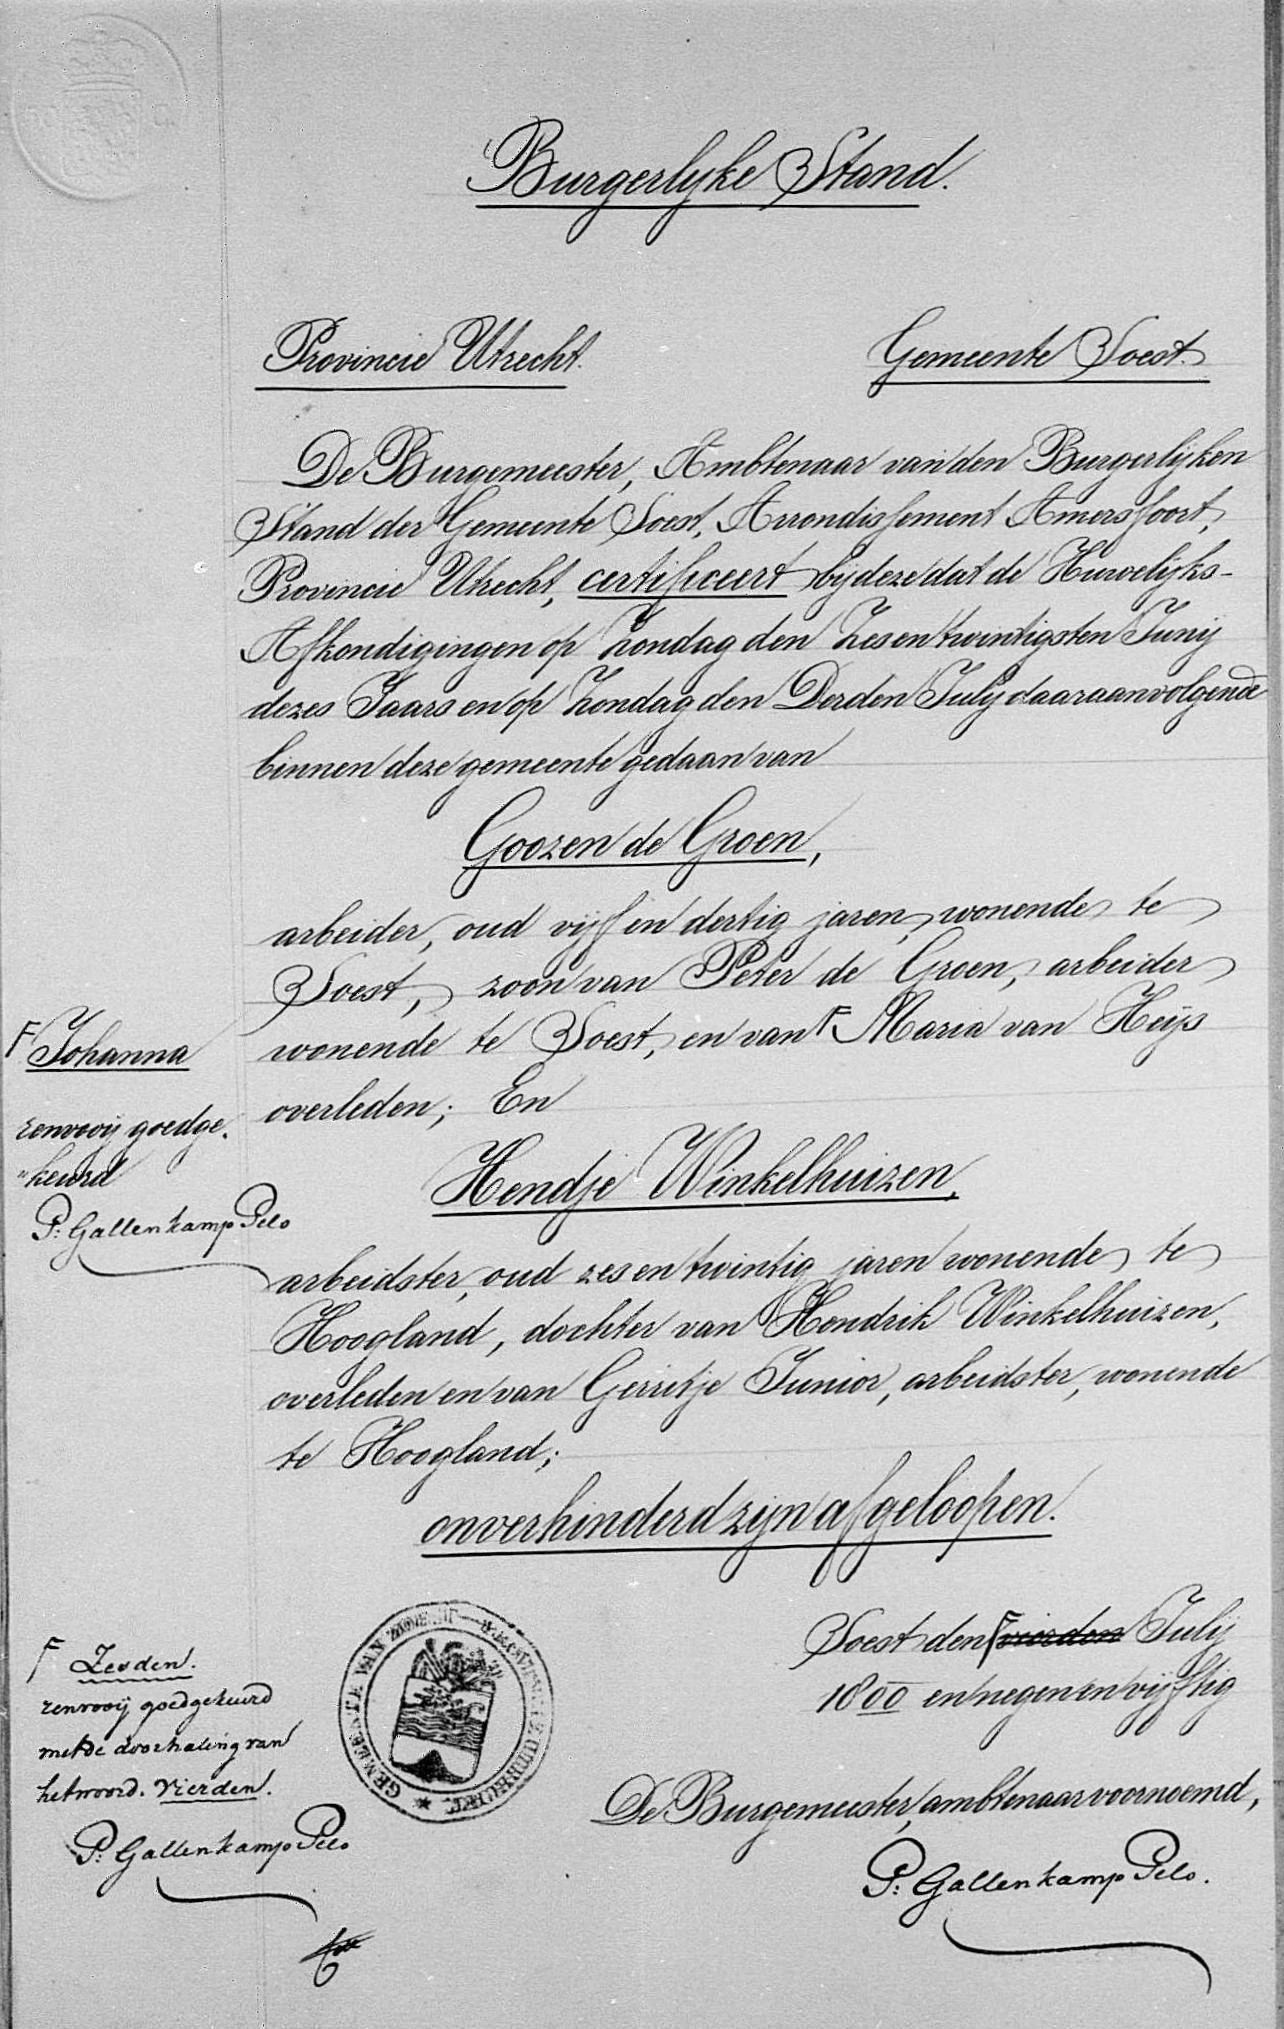 Burgerlyke Stand.
Provincie Utrecht.
Gemeente Soest.
De Burgemeester, Ambtenaar van den Burgerlijken
Stand der Gemeente Soest, Arrondissement Amersfoort,
Provincie Utrecht, certificeert bij deze dat de Huwelijks-
Afkondigingen op Zondag den Zesentwintigsten Junij
dezes Jaars en op Zondag den Derden Julij daaraanvolgende
binnen deze gemeente gedaan van
Goozen de Groen,
arbeider, oud vijf en dertig jaren, wonende te
Soest, zoon van Peter de Groen, arbeider
wonende te Soest, en van F Maria van Heijs
overleden; En
F Johanna
renvooij goedge.
"keurd
P: Gallenkamp Pelo
Hendje Winkelhuizen,
arbeidster, oud zes en twintig jaren wonende te
Hoogland, dochter van Hendrik Winkelhuizen,
overleden en van Gerritje Junior, arbeidster, wonende
te Hoogland;
onverhinderd zijn afgeloopen.
Soest den F vierden Julij
1800 en negen en vijftig
De Burgemeester, ambtenaar voornoemd,
P: Gallenkamp Pelo.
F Zesden.
renvooij goedgekeurd
met de doorhaling van
het woord. Vierden.
P: Gallenkamp Pelo
GEMEENTE VAN PROVINCIE UTRECHT